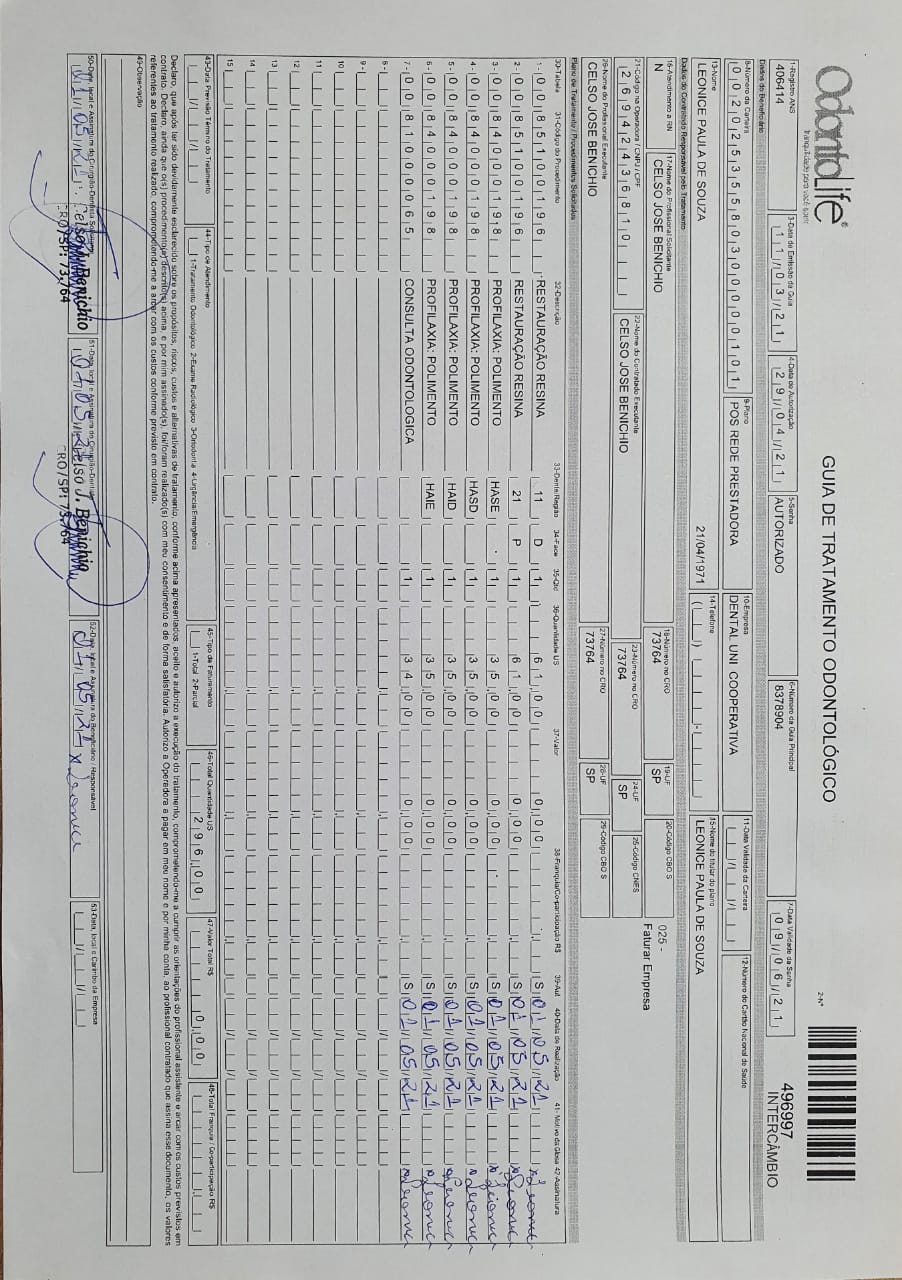 OdontoLife®
tranquilidade para você sorrir
GUIA DE TRATAMENTO ODONTOLÓGICO
2-Nº
496997
INTERCÂMBIO
1-Registro ANS
406414
3-Data de Emissão da Guia
11/03/21
4-Data de Autorização
29/04/21
5-Senha
AUTORIZADO
6-Número da Guia Principal
8378904
7-Data Validade da Senha
09/06/21
Dados do Beneficiário
8-Número da Carteira
00202535580300000101
9-Plano
POS REDE PRESTADORA
10-Empresa
DENTAL UNI COOPERATIVA
11-Data Validade da Carteira
12-Número do Cartão Nacional de Saúde
13-Nome
LEONICE PAULA DE SOUZA
21/04/1971
14-Telefone
15-Nome do titular do plano
LEONICE PAULA DE SOUZA
Dados do Contratado Responsável pelo Tratamento
16-Atendimento a RN
N
17-Nome do Profissional Solicitante
CELSO JOSE BENICHIO
18-Número no CRO
73764
19-UF
SP
20-Código CBO S
025 -
Faturar Empresa
21-Código na Operadora / CNPJ / CPF
26942436810
22-Nome do Contratado Executante
CELSO JOSE BENICHIO
23-Número no CRO
73764
24-UF
SP
25-Código CNES
26-Nome do Profissional Executante
CELSO JOSE BENICHIO
27-Número no CRO
73764
28-UF
SP
29-Código CBO S
Plano de Tratamento / Procedimentos Solicitados
30-Tabela 31-Código do Procedimento 32-Descrição 33-Dente/Região 34-Face 35-Qtd 36-Quantidade US 37-Valor 38-Franquia/Co-participação R$ 39-Aut 40-Data de Realização 41- Motivo da Glosa 42-Assinatura
1- 00 85100196 RESTAURAÇÃO RESINA 11 D 1 61,00 0,00 S 01/05/21 x Leonice
2- 00 85100196 RESTAURAÇÃO RESINA 21 P 1 61,00 0,00 S 01/05/21 x Leonice
3- 00 84000198 PROFILAXIA: POLIMENTO HASE 1 35,00 0,00 S 01/05/21 x Leonice
4- 00 84000198 PROFILAXIA: POLIMENTO HASD 1 35,00 0,00 S 01/05/21 x Leonice
5- 00 84000198 PROFILAXIA: POLIMENTO HAID 1 35,00 0,00 S 01/05/21 x Leonice
6- 00 84000198 PROFILAXIA: POLIMENTO HAIE 1 35,00 0,00 S 01/05/21 x Leonice
7- 00 81000065 CONSULTA ODONTOLOGICA 1 34,00 0,00 S 01/05/21 x Leonice
8-
9-
10
11
12
13
14
15
43-Data Previsão Término do Tratamento
44-Tipo de Atendimento
1-Tratamento Odontológico 2-Exame Radiológico 3-Ortodontia 4-Urgência/Emergência
45-Tipo de Faturamento
1-Total 2-Parcial
46-Total Quantidade US
296,00
47-Valor Total R$
0,00
48-Total Franquia / Co-participação R$
Declaro, que após ter sido devidamente esclarecido sobre os propósitos, riscos, custos e alternativas de tratamento, conforme acima apresentados, aceito e autorizo a execução do tratamento, comprometendo-me a cumprir as orientações do profissional assistente e arcar com os custos previstos em
contrato. Declaro, ainda que o(s) procedimento(s) descrito(s) acima, e por mim assinado(s), foi/foram realizado(s) com meu consentimento e de forma satisfatória. Autorizo a Operadora a pagar em meu nome e por minha conta, ao profissional contratado que assina esse documento, os valores
referentes ao tratamento realizado, comprometendo-me a arcar com os custos conforme previsto em contrato.
49-Observação
50-Data, local e Assinatura do Cirurgião-Dentista Solicitante
01/05/21
Celso J. Benichio
CRO/SP: 73.764
51-Data, local e Assinatura do Cirurgião-Dentista
01/05/21
Celso J. Benichio
CRO/SP: 73.764
52-Data, local e Assinatura do Beneficiário / Responsável
01/05/21 x Leonice
53-Data, local e Carimbo da Empresa